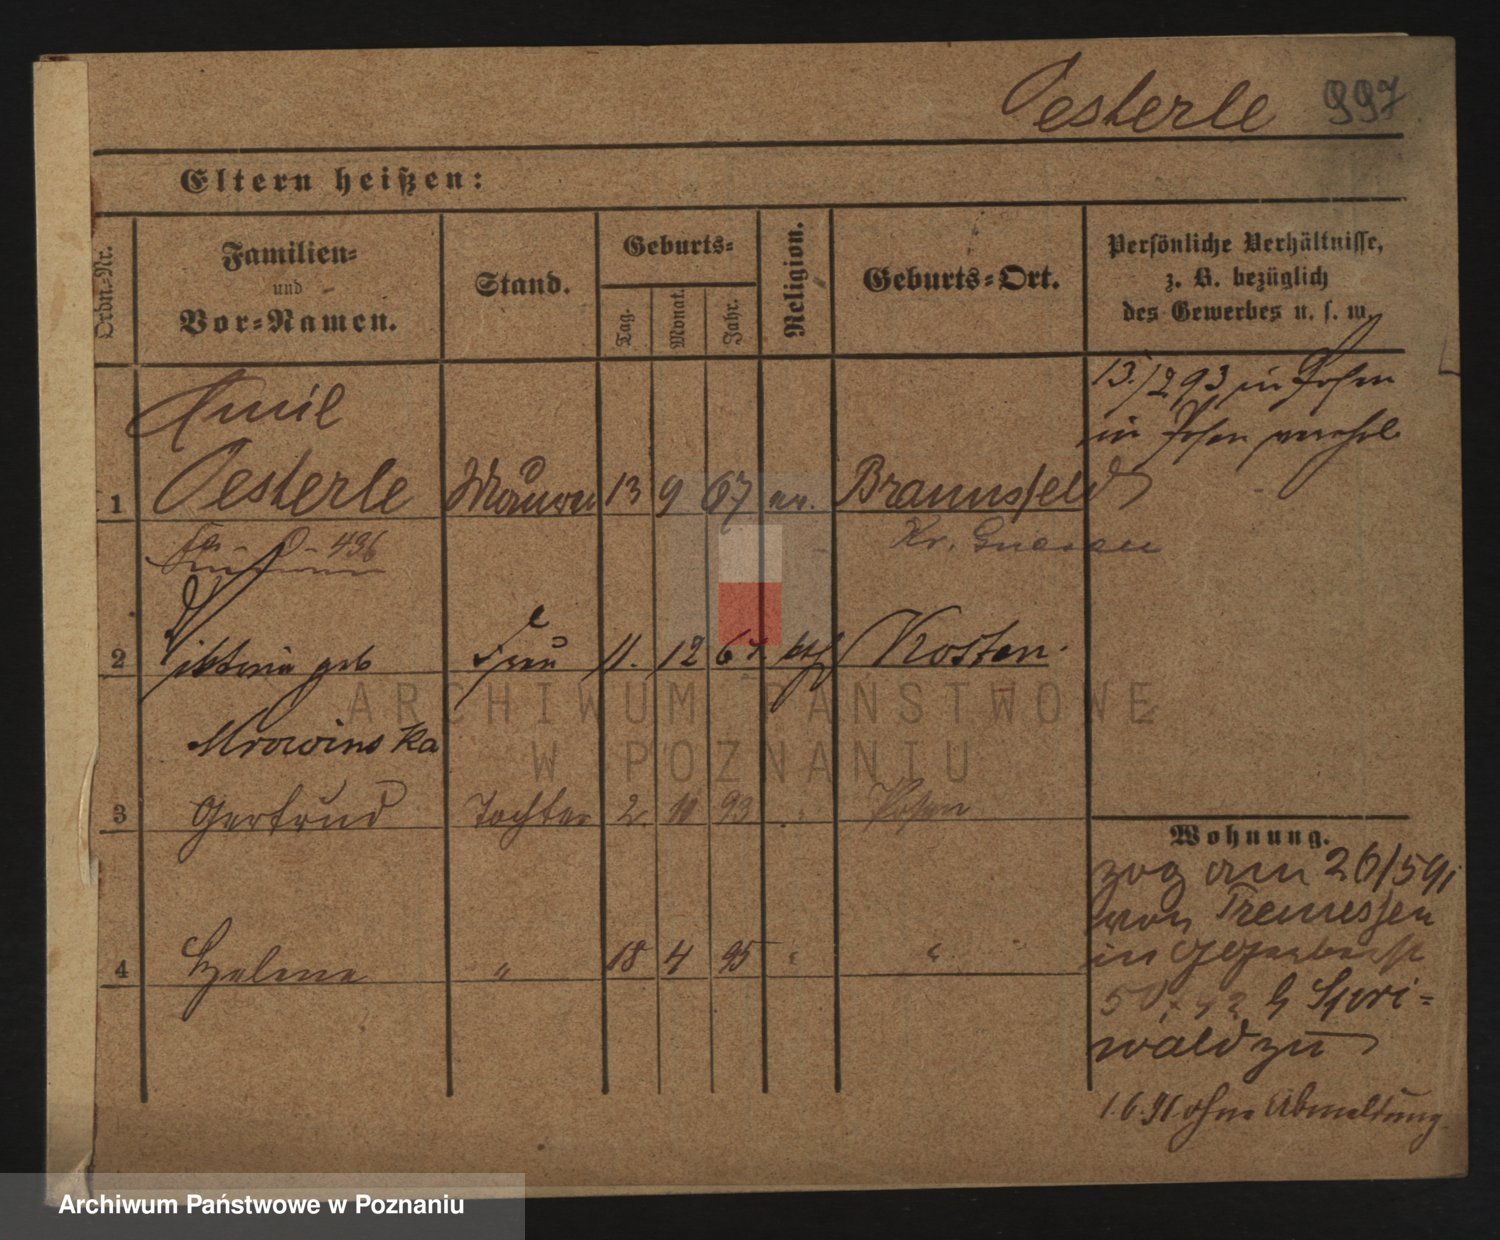 Oesterle 997
Eltern heißen:
Ordn-Nr.
Familien-
und
Vor-Namen.
Stand.
Geburts-
Tag.
Monat.
Jahr.
Religion.
Geburts-Ort.
Persönliche Verhältnisse,
z. B. bezüglich
des Gewerbes u. s. w.
13./2 93 in Posen
in Posen verehel
Emil
1 Oesterle Maurer 13 9 67 ev. Braunsfeld
436 Kr. Gnesen
2 Viktoria geb Frau 11. 12 67. kth Kosten.
Mrowinska
3 Gertrud Tochter 2. 11 93 " Posen
4 Helene " 18 4 95 " "
Wohnung.
zog am 26/5 91
von Tremessen
in
b Spri=
wald zu
1.6.91 ohne Abmeldung
ARCHIWUM PAŃSTWOWE
W POZNANIU
Archiwum Państwowe w Poznaniu